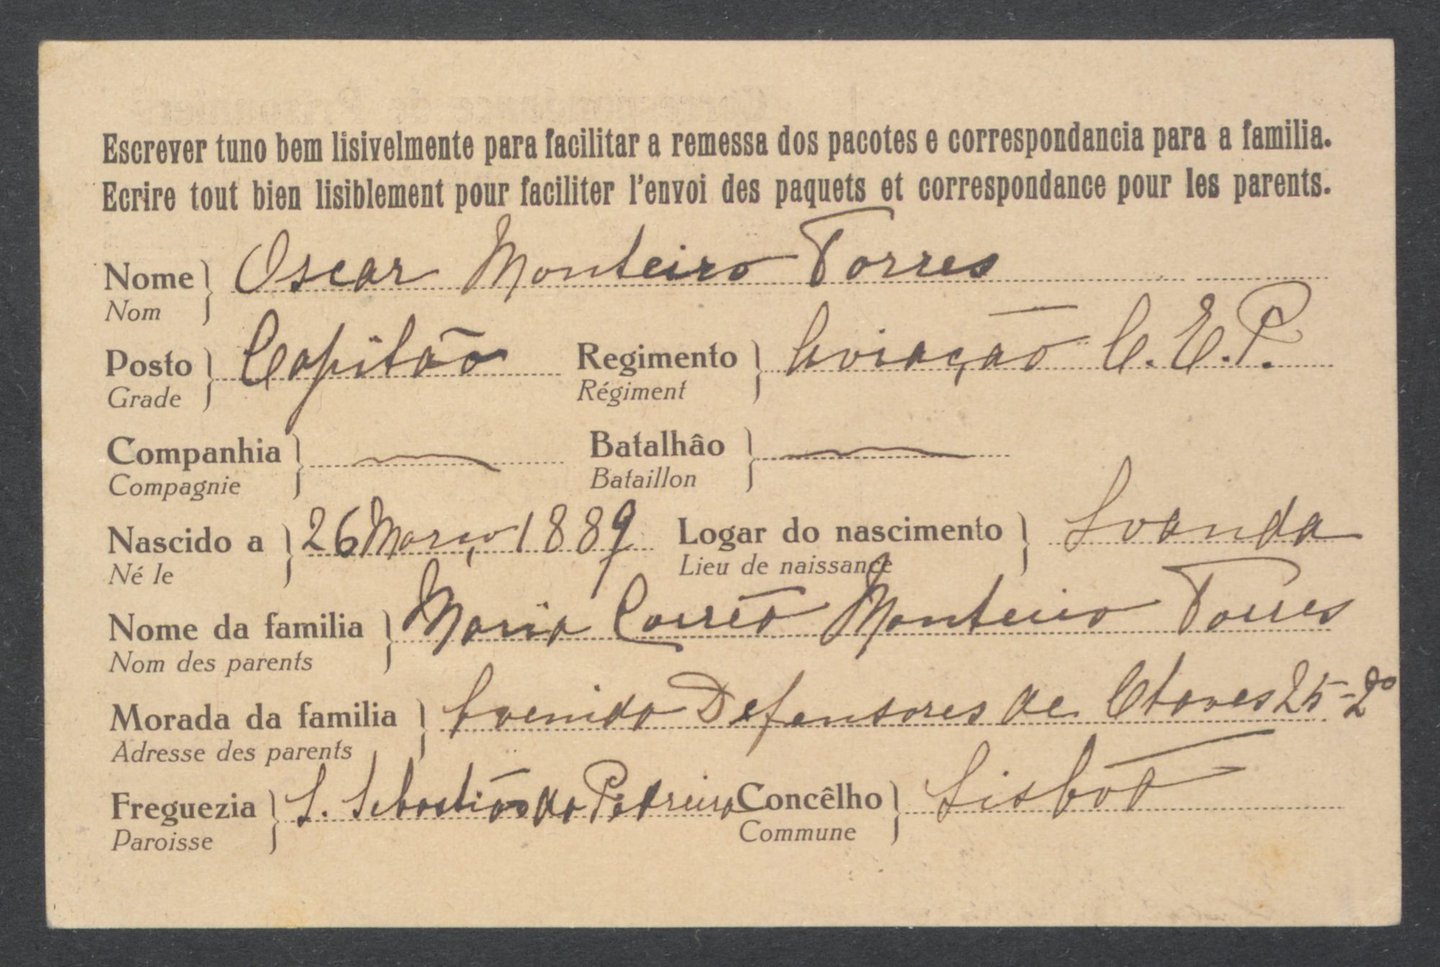 Escrever tuno bem lisivelmente para facilitar a remessa dos pacotes e correspondancia para a familia.
Ecrire tout bien lisiblement pour faciliter l'envoi des paquets et correspondance pour les parents.
Nome } Oscar Monteiro Torres
Nom
Posto } Capitão Regimento } Aviação C. E. P.
Grade Régiment
Companhia } Batalhâo }
Compagnie Bataillon
Nascido a } 26 Março 1889 Logar do nascimento } Loanda
Né le Lieu de naissance
Nome da familia } Maria Corrêa Monteiro Torres
Nom des parents
Morada da familia } Avenida Defensores de Chaves 25-2º
Adresse des parents
Freguezia } S. Sebastião da Pedreira Concêlho } Lisbôa
Paroisse Commune